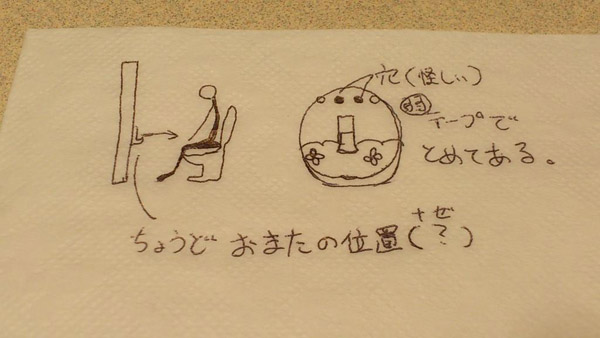 穴(怪しい)
テープで
とめてある。
ちょうど おまたの位置(?)
なぜ